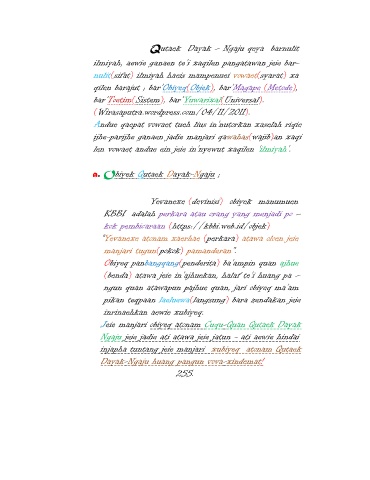 Qutaek Dayak – Ngaju qeya barnulit
ilmiyah, aewie ganaen te'i zaqilen pangatawan jeie bar-
nulit(sifat) ilmiyah haeis mampunuei vowaet(syarat) za
qilen barajut ; bar'Obiyeq(Objek), bar'Maqape (Metode),
bar Toetim(Sistem), bar'Yuwarizal(Universal).
(Wirasaputra.wordpress.com/04/11/2011).
Andue qaepat vowaet tueh lius in'nutorkan zaselah riqie
jihe-parijhe ganaen jadie manjari qawahas(wajib)an zaqi
len vowaet andue ein jeie in'nyewut zaqilen 'ilmiyah'.
a. Obiyek Qutaek Dayak-Ngaju ;
Yevaneze (devinisi) obiyek manumuen
KBBI adalah perkara atau orang yang menjadi po –
kok pembicaraan (https://kbbi.web.id/objek)
"Yevaneze atonam zaerhae (perkara) atawa olven jeie
manjari tugun(pokok) pamanderan".
Obiyeq panbangqang(penderita) ba'ampin quan ajhue
(benda) atawa jeie in'ajhuekan, halaf te'i huang pa –
ngun quan atawapun pajhue quan, jari obiyeq ma'am
pikan teqpaan laeluewa(langsung) bara zandakan jeie
inrinaehkan aewie xubiyeg.
Jeie manjari obiyeq atonam Cuqu-Quan Qutaek Dayak
Ngaju jeie jadie ati atawa jeie jatun – ati aewie hindai
injapha tuntang jeie manjari xubiyeq atonam Qutaek
Dayak-Ngaju huang pangun vova-xindemat!
255.